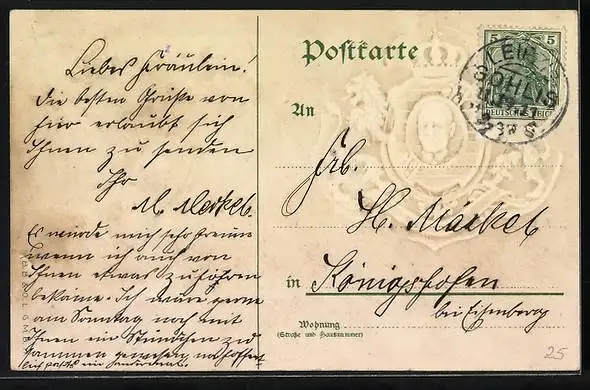 Liebes Fräulein!
Die besten Grüße von
hier erlaubt sich
Ihnen zu senden
Ihr
M. Merkel.
Es würde mich sehr freuen
wenn ich auch von
Ihnen etwas zu hören
bekäme. Ich wäre gerne
am Sonntag noch mit
Ihnen ein Stündchen zu
sammen gewesen
Postkarte
An
Frl.
H. Märkel
in Königshofen
bei Eisenberg
Wohnung
(Straße und Hausnummer)
5 5
DEUTSCHES REICH
GOHLIS
25